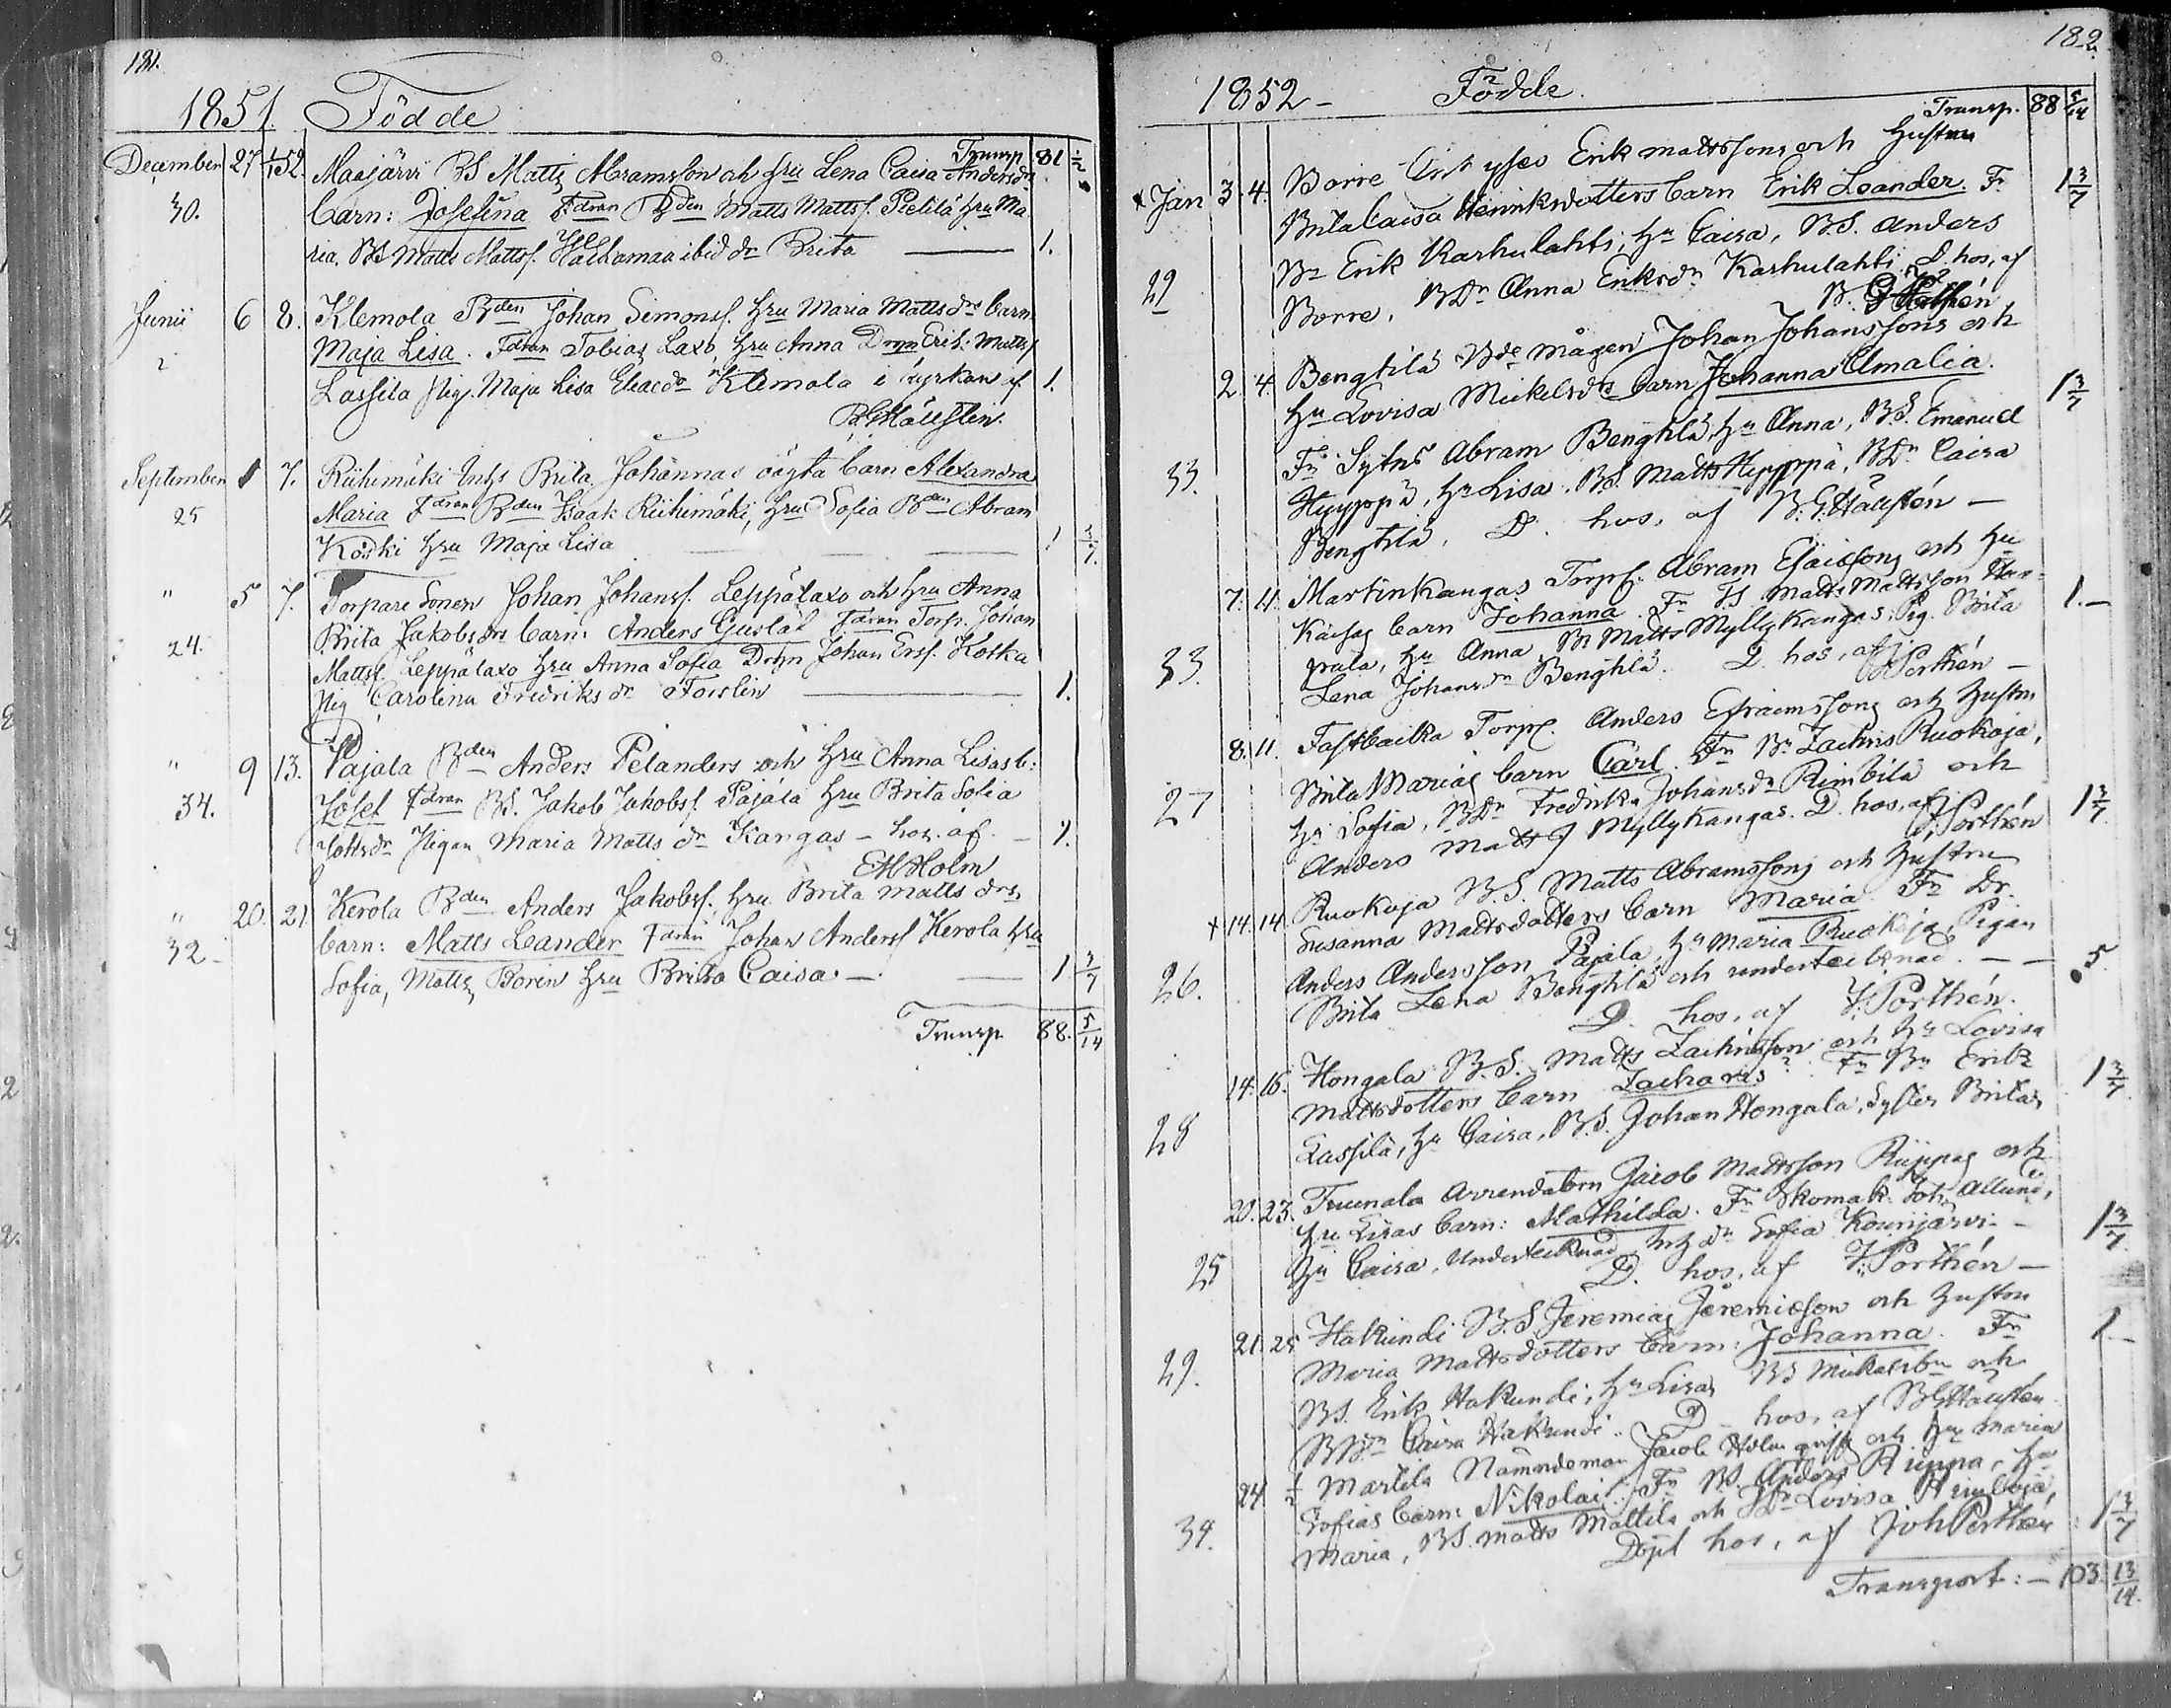 181.
1851. Födde
Transp. 81 1/2
December 27 1/1 52. Maajärvi BS Matts Abramsson och hru Lena Caisa Andersdr
30. barn: Josefina Fdran Bden Matts Mattss. Pietilä hru Ma
ria. BS Matts Mattss. ibid dr Brita — 1.
Junii 6 8. Klemola Bden Johan Simonss. hru Maria Mattsdrs barn
2 Maja Lisa. Fdran Tobias Laxo, hru Anna Drgn Erik Mattss
Lassila Pig. Maja Lisa Klemola i kyrkan af 1.
B. G. Hällstén.
September 1 7. Riihimäki Inhs Brita Johannas oägta barn Alexandra
25 Maria Fdran Bden Isaak Riihimäki, hru Sofia Bden Abram
Koski hru Maja Lisa — 1 3/7.
" 5 7. Torpare Sonen Johan Johanss. Leppälaxo och hru Anna
24. Brita Jakobsdrs barn: Anders Gustaf Fdran Torp. Johan
Mattss. Leppälaxo hru Anna Sofia Drgn Johan Erss. Kotka
Pig Carolina Fredriksdr Forslin — 1.
" 9 13. Pajala Bden Anders Pelanders och hru Anna Lisas b:
34. Josef Fdran BS. Jakob Jakobss. Pajala hru Brita Sofia
Pigan Maria Mattsdr Kangas – hos. af – 1.
EHHolm
" 20. 21. Kerola Bden Anders Jakobss. hru Brita Matts drs
32 - barn: Matts Leander Fdran Johan Anderss Kerola hru
Sofia, Matts Boren hru Brita Caisa — 1 3/7
Transp. 88. 5/14
182.
1852 - Födde.
Transp. 88 5/14
x Jan 3. 4. Borre Erik Mattssons och hustru
Brita Caisa Henriksdotters barn Erik Leander. Fr 1 3/7
29 Br Erik Karhulahti, hru Caisa, BS. Anders
Borre, BDr Anna Eriksdr Karhulahti. D. hos, af
Porthén
2. 4. Bengtilä Bde mågen Johan Johanssons och
hru Lovisa Mickelsdrs barn Johanna Amalia. 1 3/7
33. Fr Sytns Abram Bengtilä, hru Anna, BS. Emanuel
Hyyppä, hru Lisa. BS. Matts Hyyppä, BDr Caisa
Bengtilä. D. hos. af B. G. Hällstén —
7. 11. Martinkangas Torpss. Abram Esaiæsons och hu
Kaisas barn Johanna Fr TS Matts Mattsson Haa- 1. —
33. pala, hru Anna, Br Matts Myllykangas, Pig. Brita
Lena Johansdr Bengtilä. D. hos, af J. Porthén —
8. 11. Fastbacka Torp. Anders Efraimssons och hustru
Brita Marias barn Carl. Fr Br Zachris Ruokoja,
27 hru Sofia, BDr Fredrika Johansdr Rimbilä och
Anders Matts J Myllykangas. D. hos, af J. Porthén 1 3/7
x 14. 14. Ruokoja B.S. Matts Abramssons och hustru
Susanna Mattsdotters barn Maria Fr Dr.
26. Anders Andersson Pajala, hru Maria Ruokoja, Pigan
Brita Lena Bengtilä och undertecknad. — — 5.
D. hos, af J. Porthén.
14. 16. Hongala B.S. Matts Zachrisson och hru Lovisa
Mattsdotters barn Zacharias Fr Br Erik 1 3/7
28 Lassila, hru Caisa, B.S. Johan Hongala, Syster Brita
20. 23. Truunala Arrendatorn Jacob Mattsson Riippas och
hru Lisas barn: Mathilda. Fr Skomak. Joh. Allund,
25 hru Caisa, Undertecknad, Inhdr Sofia Kounjärvi — 1 3/7
D. hos. af J. Porthén —
21. 25 Hakundi B.S Jeremias Jeremiæson och hustru
29. Maria Mattsdotters barn: Johanna. Fr 1 —
BS. Erik Hakundi, hru Lisa, BS Mickel och
BDr Caisa Hakundi. D hos. af B. G. Hällstén
24 1/2 Martila Nämndeman Jacob Holmqvists och hru Maria
Sofias barn: Nikolai. Fr BS. Anders Riippa, hru
34. Maria, BS. Matts Mattila och BDr Lovisa 1 3/7
Döpt hos, af Joh Porthén
Transport: — 103 13/14.